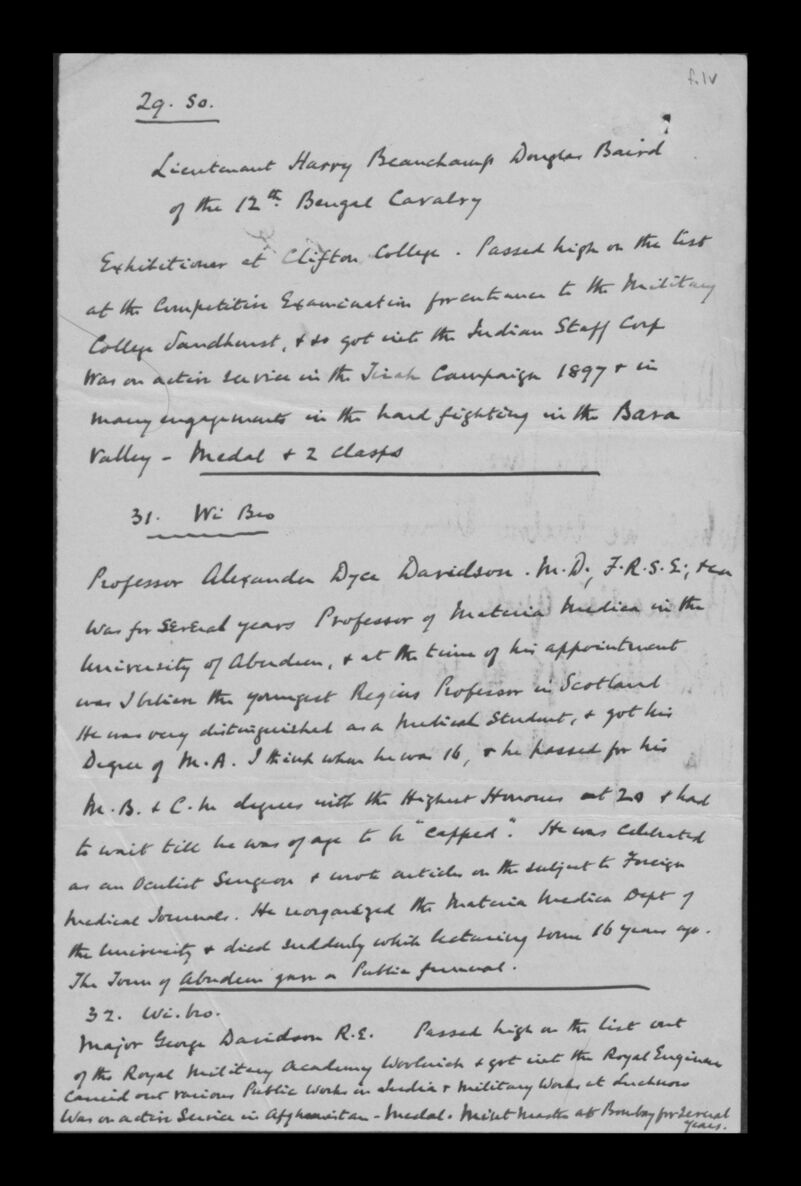 f.1v
29. So.
Lieutenant Harry Beauchamp Douglas Baird
of the 12th Bengal Cavalry
Exhibitioner at Clifton College. Passed high on the list
at the Competitive Examination for entrance to the Military
College Sandhurst, & so got into the Indian Staff Corp
Was on active service in the Tirah Campaign 1897 & in
many engagements in the hard fighting in the Bara
Valley - Medal & 2 Clasps
31. Wi Bro
Professor Alexander Dyce Davidson. M.D., F.R.S.E.,
was for several years Professor of Materia Medica in the
University of Aberdeen, & at the time of his appointment
was I believe the youngest Regius Professor in Scotland
He was very distinguished as a Medical Student, & got his
Degree of M.A. I think when he was 16, & he passed for his
M.B. & C.M degrees with the Highest Honours at 20 & had
to wait till he was of age to be "capped". He was celebrated
as an Oculist Surgeon & wrote articles on the subject to Foreign
Medical Journals. He reorganized the Materia Medica Dept of
the University & died suddenly while lecturing some 16 years ago.
The Town of Aberdeen gave a Public funeral.
32. Wi. bro.
Major George Davidson R.E. Passed high on the list out
of the Royal Military Academy Woolwich & got into the Royal Engineers
Carried out various Public Works in India & Military Works at Lucknow
Was on active Service in Afghanistan - Medal. Mint Master at Bombay for several
years.